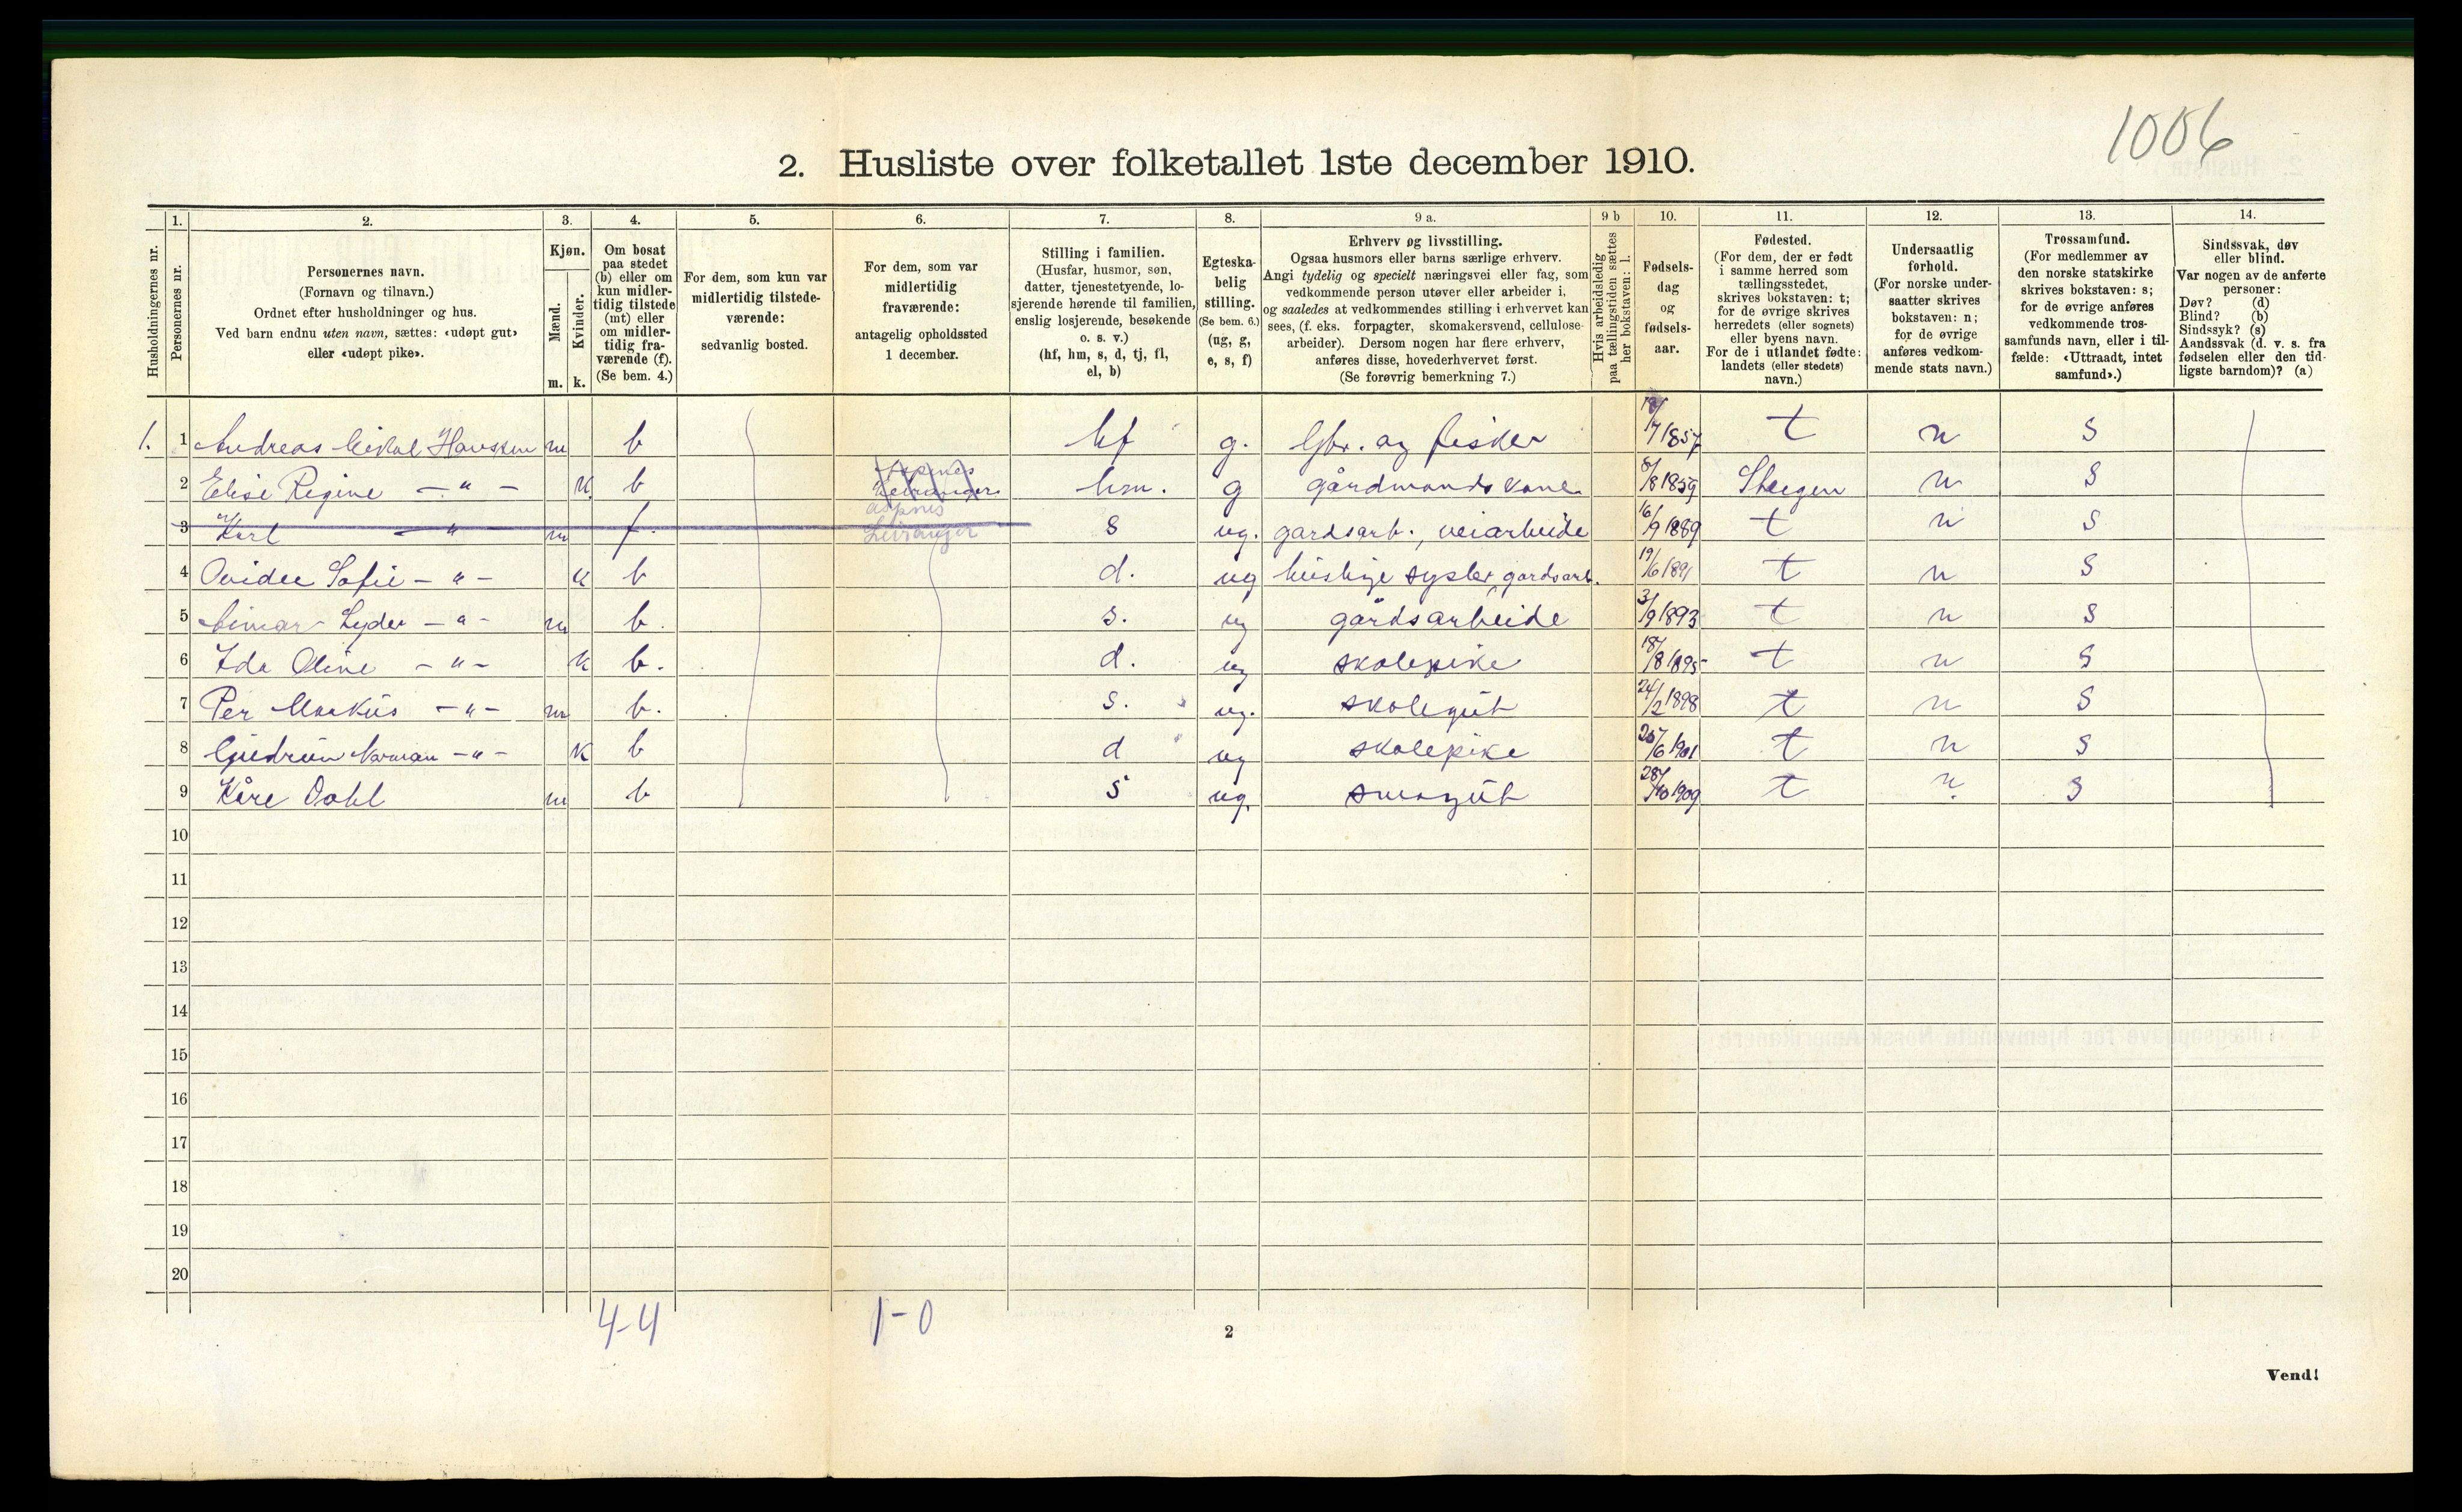 1006
2. Husliste over folketallet 1ste december 1910.
Husholdningernes nr.
1.
Personernes nr.
2.
Personernes navn.
(Fornavn og tilnavn.)
Ordnet efter husholdninger og hus.
Ved barn endnu uten navn, sættes: «udøpt gut»
eller «udøpt pike».
3.
Kjøn.
Mænd.
Kvinder.
m. k.
4.
Om bosat
paa stedet
(b) eller om
kun midler-
tidig tilstede
(mt) eller
om midler-
tidig fra-
værende (f).
(Se bem. 4.)
5.
For dem, som kun var
midlertidig tilstede-
værende:
sedvanlig bosted.
6.
For dem, som var
midlertidig
fraværende:
antagelig opholdssted
1 december.
7.
Stilling i familien.
(Husfar, husmor, søn,
datter, tjenestetyende, lo-
sjerende hørende til familien,
enslig losjerende, besøkende
o. s. v.)
(hf, hm, s, d, tj, fl,
el, b)
8.
Egteska-
belig
stilling.
(Se bem. 6.)
(ug, g,
e, s, f)
9 a.
Erhverv og livsstilling.
Ogsaa husmors eller barns særlige erhverv.
Angi tydelig og specielt næringsvei eller fag, som
vedkommende person utøver eller arbeider i,
og saaledes at vedkommendes stilling i erhvervet kan
sees, (f. eks. forpagter, skomakersvend, cellulose-
arbeider). Dersom nogen har flere erhverv,
anføres disse, hovederhvervet først.
(Se forøvrig bemerkning 7.)
9 b
Hvis arbeidsledig
paa tællingstiden sættes
her bokstaven: l.
10.
Fødsels-
dag
og
fødsels-
aar.
11.
Fødested.
(For dem, der er født
i samme herred som
tællingsstedet,
skrives bokstaven: t;
for de øvrige skrives
herredets (eller sognets)
eller byens navn.
For de i utlandet fødte:
landets (eller stedets)
navn.)
12.
Undersaatlig
forhold.
(For norske under-
saatter skrives
bokstaven: n;
for de øvrige
anføres vedkom-
mende stats navn.)
13.
Trossamfund.
(For medlemmer av
den norske statskirke
skrives bokstaven: s;
for de øvrige anføres
vedkommende tros-
samfunds navn, eller i til-
fælde: «Uttraadt, intet
samfund».)
14.
Sindssvak, døv
eller blind.
Var nogen av de anførte
personer:
Døv? (d)
Blind? (b)
Sindssyk? (s)
Aandssvak (d. v. s. fra
fødselen eller den tid-
ligste barndom)? (a)
1. 1 Andreas Mikal Hansen m b hf g. Gbr. og fisker /7 1857 t n s
2 Elise Regine —"— k b hm. g gårdmands kone 8/8 1859 Steigen n s
3 Karl —"— m f. Aspnes Leiranger s ug. gardsarb., veiarbeide 16/9 1889 t n s
4 Ovidee Sofie —"— k b d. ug huslige sysler, gardsarb. 19/6 1891 t n s
5 Lyder —"— m b. s. ug gårdsarbeide 3/9 1893 t n s
6 Ida Oline —"— k b. d. ug skolepike 18/8 1895 t n s
7 Per Markus —"— m b. s. ug. skolegut 24/2 1898 t n s
8 Gudrun Norman —"— k b d ug skolepike /6 1901 t n s
9 Kåre Dahl m b s ug. smagut 28/10 1909 t n s
10
11
12
13
14
15
16
17
18
19
20
4-4 1-0
2
Vend!